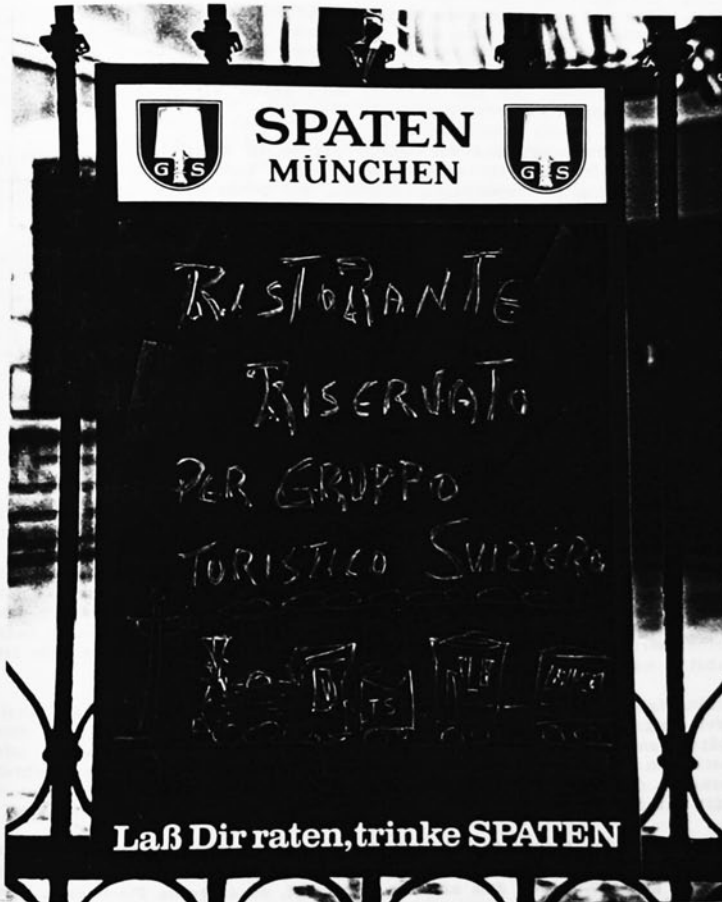 SPATEN
MÜNCHEN
G S
G S
RISTORANTE
RISERVATO
PER GRUPPO
TURISTICO SVIZZERO
Laß Dir raten, trinke SPATEN